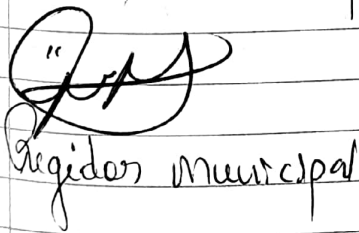 Regidor Municipal